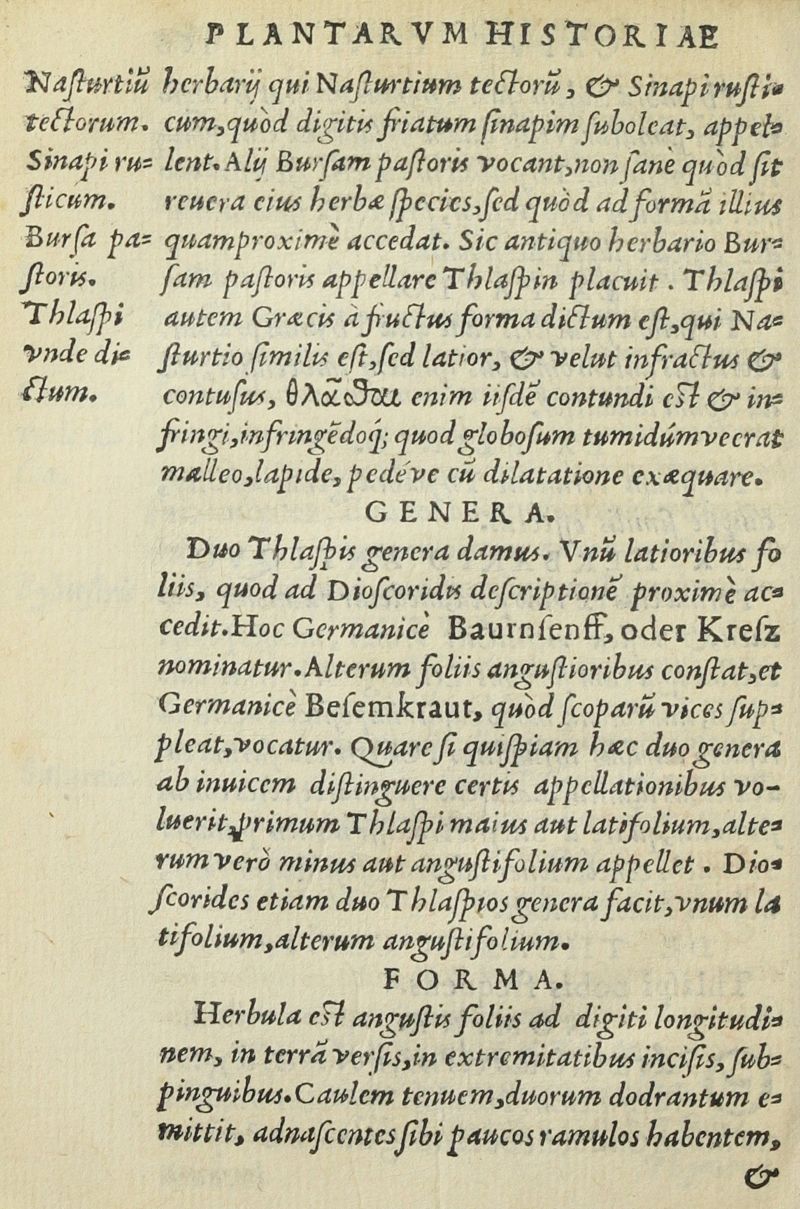 PLANTARVM HISTORIAE
Naſturtiũ
tectorum.
Sinapi ru=
ſticum.
Burſa pa=
ſtoris.
Thlaſpi
vnde di=
ctum.
herbarij qui Naſturtium tectorũ, & Sinapi ruſti=
cum, quòd digitis friatum ſinapim ſuboleat, appel=
lent. Alij Burſam paſtoris vocant, non ſanè quòd ſit
reuera eius herbæ ſpecies, ſed quòd ad formã illius
quamproximè accedat. Sic antiquo herbario Bur=
ſam paſtoris appellare Thlaſpin placuit. Thlaſpi
autem Græcis à fructus forma dictum eſt, qui Na=
ſturtio ſimilis eſt, ſed latior, & velut infractus &
contuſus, θλᾶσθαι enim iiſdẽ contundi eſt & in=
fringi, infringẽdoq́; quod globoſum tumidúmve erat
malleo, lapide, pedéve cũ dilatatione exæquare.
GENERA.
Duo Thlaſpis genera damus. Vnũ latioribus fo
liis, quod ad Dioſcoridis deſcriptionẽ proximè ac=
cedit. Hoc Germanicè Baurnſenff, oder Kreſz
nominatur. Alterum foliis anguſtioribus conſtat, et
Germanicè Beſemkraut, quòd ſcoparũ vices ſup=
pleat, vocatur. Quare ſi quiſpiam hæc duo genera
ab inuicem diſtinguere certis appellationibus vo-
luerit, primum Thlaſpi maius aut latifolium, alte=
rum verò minus aut anguſtifolium appellet. Dio=
ſcorides etiam duo Thlaſpios genera facit, vnum la
tifolium, alterum anguſtifolium.
FORMA.
Herbula eſt anguſtis foliis ad digiti longitudi=
nem, in terrã verſis, in extremitatibus inciſis, ſub=
pinguibus. Caulem tenuem, duorum dodrantum e=
mittit, adnaſcentes ſibi paucos ramulos habentem,
&